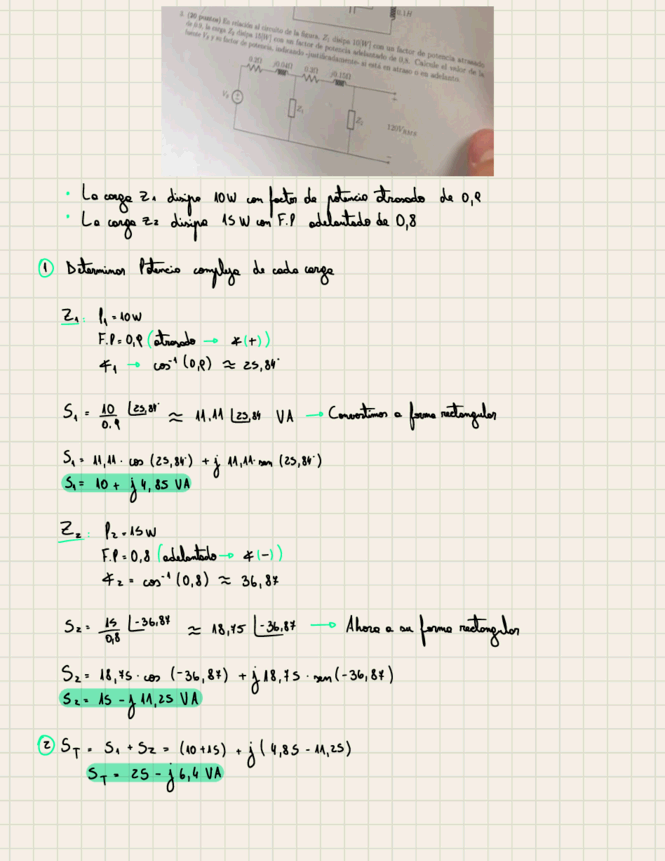 0.1H
3. (20 puntos) En relación al circuito de la figura, Z₁ disipa 10[W] con un factor de potencia atrasado
de 0.9, la carga Z₂ disipa 15[W] con un factor de potencia adelantado de 0.8. Calcule el valor de la
fuente V_F y su factor de potencia, indicando -justificadamente- si está en atraso o en adelanto.
0.2Ω j0.04Ω 0.2Ω j0.15Ω
Z₁
Z₂
· La carga Z₁ disipa 10W con factor de potencia atrasado de 0,9
· La carga Z₂ disipa 15W con F.P adelantado de 0,8
① Determinas Potencia compleja de cada carga
Z₁: P₁ = 10W
F.P = 0,9 (atrasado → ∡(+))
∡₁ → cos⁻¹(0,9) ≈ 25,84°
S₁ = 10/0,9 ∠25,84° ≈ 11,11 ∠25,84 VA → Convertimos a forma rectangular
S₁ = 11,11 · cos (25,84°) + j 11,11 · sen (25,84°)
S₁ = 10 + j 4,85 VA
Z₂: P₂ = 15W
F.P = 0,8 (adelantado → ∡(-))
∡₂ = cos⁻¹(0,8) ≈ 36,87
S₂ = 15/0,8 ∠-36,87 ≈ 18,75 ∠-36,87 → Ahora a su forma rectangular
S₂ = 18,75 · cos (-36,87) + j 18,75 · sen(-36,87)
S₂ = 15 - j 11,25 VA
② S_T = S₁ + S₂ = (10+15) + j(4,85 - 11,25)
S_T = 25 - j 6,4 VA